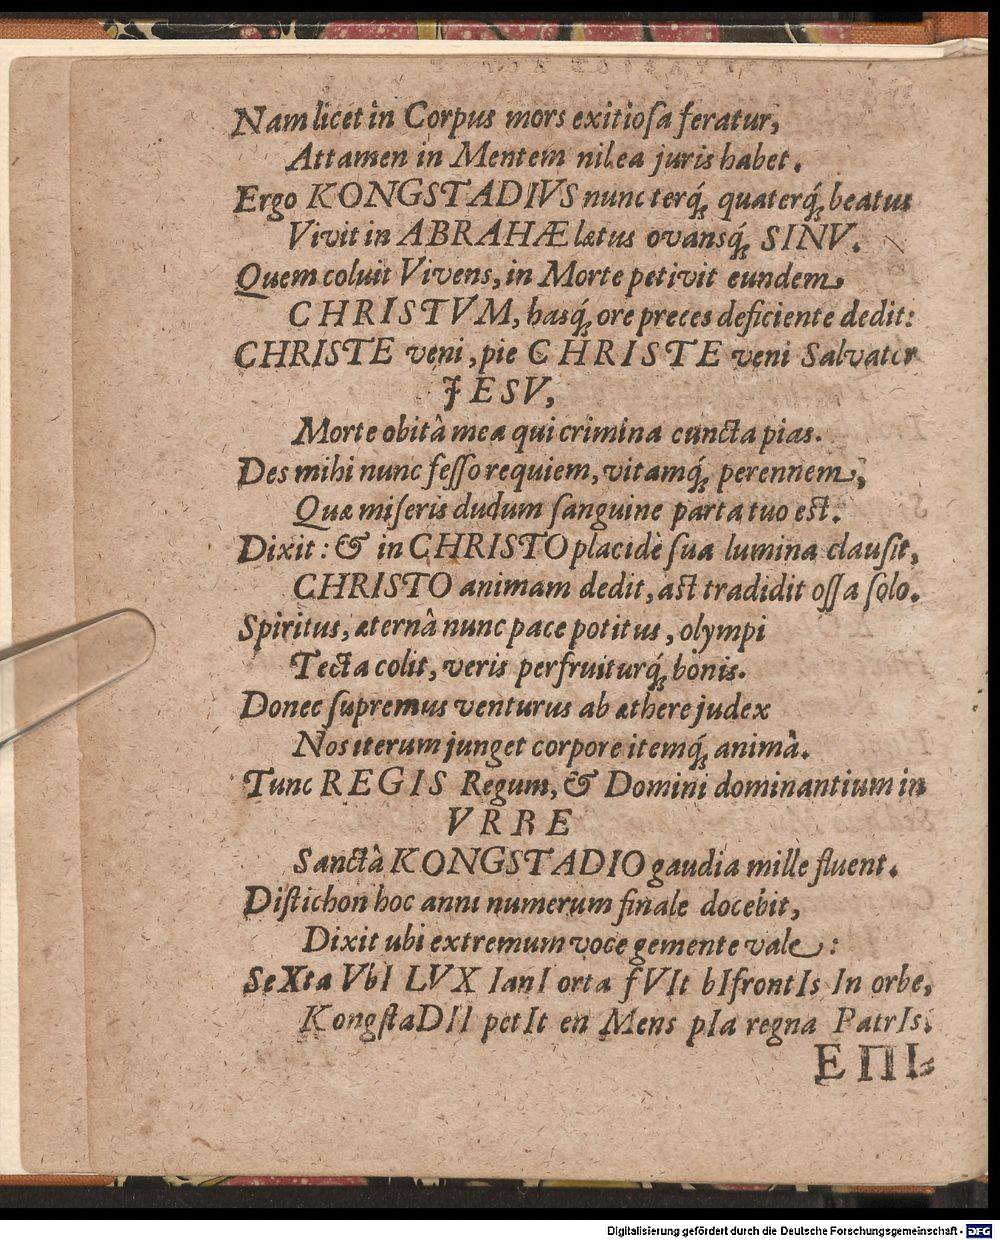 Nam licet in Corpus mors exitioſa feratur,
Attamen in Mentem nil ea juris habet.
Ergo KONGSTADIVS nunc terq́; quaterq́; beatus
Vivit in ABRAHÆ lætus ovansq́; SINV.
Quem coluit Vivens, in Morte petivit eundem
CHRISTVM, hasq́; ore preces deficiente dedit:
CHRISTE veni, pie CHRISTE veni Salvator
JESV,
Morte obitâ mea qui crimina cuncta pias.
Des mihi nunc feſſo requiem, vitamq́; perennem,
Quæ miſeris dudum ſanguine parta tuo est.
Dixit: & in CHRISTO placidè ſua lumina clauſit,
CHRISTO animam dedit, ast tradidit oſſa ſolo.
Spiritus, æternâ nunc pace potitus, olympi
Tecta colit, veris perfruiturq́; bonis.
Donec ſupremus venturus ab æthere judex
Nos iterum junget corpore itemq́; animâ.
Tunc REGIS Regum, & Domini dominantium in
VRBE
Sanctâ KONGSTADIO gaudia mille fluent.
Diſtichon hoc anni numerum finale docebit,
Dixit ubi extremum voce gemente vale:
SeXta VbI LVX IanI orta fVIt bIfrontIs In orbe,
KongſtaDII petIt en Mens pIa regna PatrIs.
ΕΠΙ-
Digitalisierung gefördert durch die Deutsche Forschungsgemeinschaft - DFG